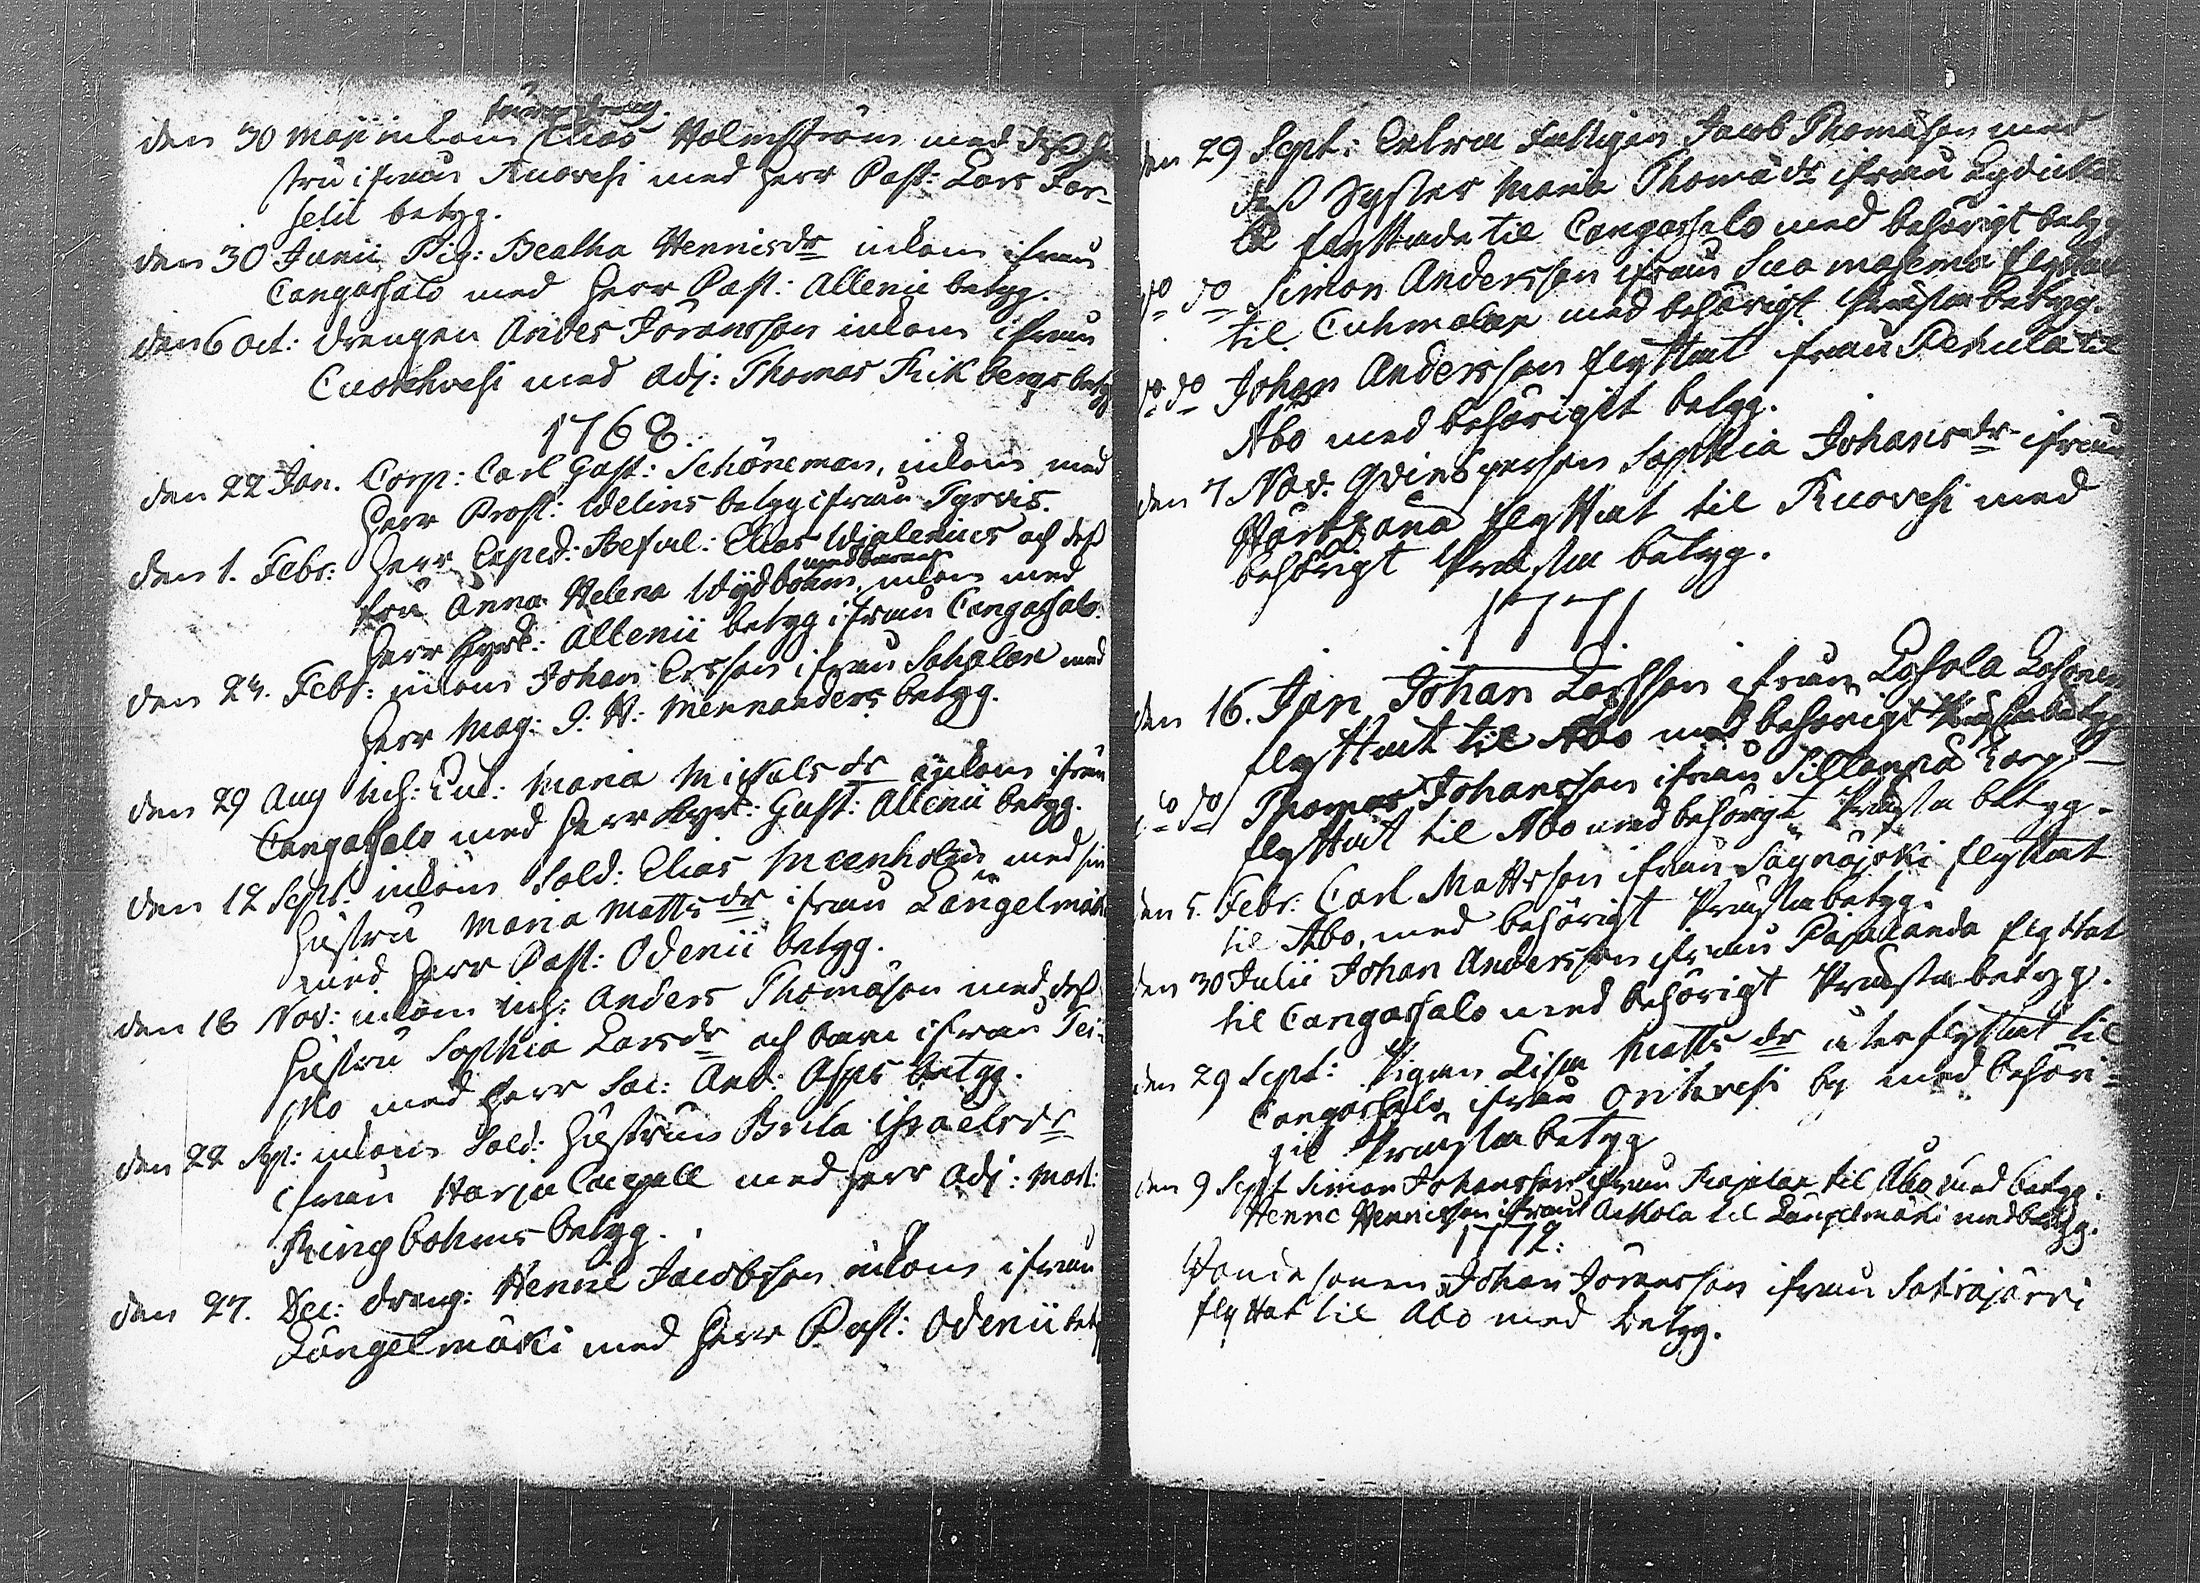 den 30 Maji inkom Elias Holmström med dess hu
stru ifrån Ruovesi med Herr Past: Lars For-
selii betyg.
den 30 Junii Pig: Beatha Hennisdr inkom ifrån
Cangasalo med Herr Past: Allenii betyg.
den 6 Oct: drengen Anders Jöransson inkom ifrån
Cuorehvesi med Adj: Thomas Frikbergs betyg
1768.
den 22 Jan. Corp: Carl Gust: Schöneman, inkom med
Herr Prost: Idelins betyg ifrån Tyrvis.
den 1. Febr: Herr Exped: Befal: Elias Idialenius och dess
fru Anna Helena Wydbohm, med barn inkom med
Herr Kyrk: Allenii betyg ifrån Cangasalo.
den 24. Febr: inkom Johan Ersson ifrån Sahalax med
Herr Mag: J: H: Mennanders betyg.
den 29 Aug inh: Enk: Maria Mickelsdr inkom ifrån
Cangasalo med Herr Kyrk: Gust: Allenii betyg.
den 12 Sept: inkom Sold: Elias med sin
hustru Maria Mattsdr ifrån Längelmäki
med Herr Past: Odenii betyg.
den 16 Nov: inkom inh: Anders Thomason med dess
hustru Sophia Larsdr och barn ifrån Tei-
sko med Herr Sac: And: Asps betyg.
den 22 Sept: inkom Sold: hustrun Brita Israelsdr
ifrån Harju Cangall med Herr Adj: Mart:
Ringbohms betyg.
den 27. Dec: dreng: Henric Jacobsson inkom ifrån
Längelmäki med Herr Past: Odenii bet
den 29 Sept: Enkra Fattigen Jacob Thomason med
dess Syster Maria Thomadr ifrån
flyttade til Cangasalo med behörigt betyg
do do Simon Andersson ifrån Suomasema flyttat
til Cuhmalax med behörigt Prästa betyg.
do do Johan Andersson flyttat ifrån Pehula til
Åbo med behörigit betyg.
den 7 Nov. Qvinspersen Sophia Johansdr ifrån
flyttat til Ruovesi med
behörigt Prästa betyg.
1771
den 16. Jan Johan Larsson ifrån Lyhola
flyttat til Åbo med behörigt Prästabetyg
do do Thomas Johansson ifrån Sillanpä Torp
flyttat til Åbo med behörigt Prästa betyg.
den 5. Febr: Carl Mattsson ifrån Säynäjoki flyttat
til Åbo, med behörigt Prästabetyg.
den 30 Julii Johan Andersson ifrån Pajulanda flyttat
til Cangasalo med behörigt Prästabetyg.
den 29 Sept: Pigan Lisa Mattsdr flyttat til
Cangasalo ifrån Orivesi by med behöri-
git Prästabetyg
den 9 Sept Simon Johansson ifrån til Åbo med betyg.
Henric Henricsson ifrån Aihtola til Längelmäki med betyg.
1772:
Bondesonen Johan Jöransson ifrån Satrajärvi
flyttat til Åbo med betyg.